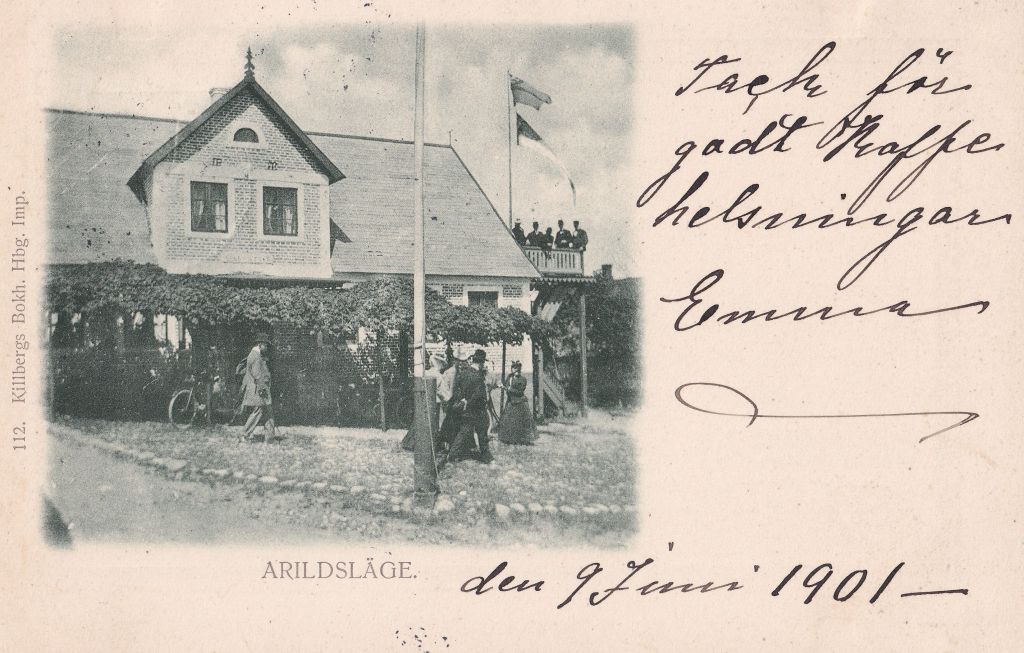 Tack för
godt Kaffe
helsningar
Emma
112. Killbergs Bokh. Hbg. Imp.
ARILDSLÄGE.
den 9 Juni 1901